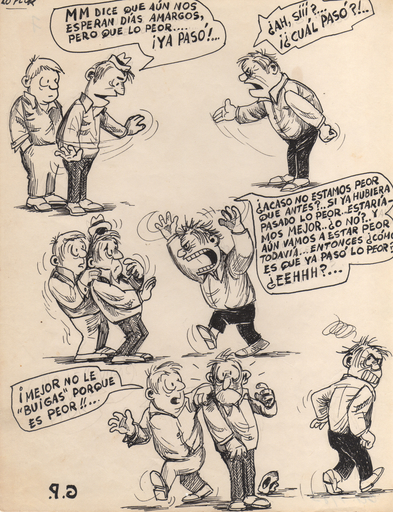 LO PEOR
MM DICE QUE AÚN NOS
ESPERAN DÍAS AMARGOS,
PERO QUE LO PEOR....
¡YA PASÓ!...
¿AH, SÍÍÍ?...
¡¿CUÁL PASÓ?!..
¿ACASO NO ESTAMOS PEOR
QUE ANTES?.. SI YA HUBIERA
PASADO LO PEOR.. ESTARÍA-
MOS MEJOR..¿O NO?. Y
AÚN VAMOS A ESTAR PEOR
TODAVÍA... ENTONCES ¿CÓMO
ES QUE YA PASÓ LO PEOR?
¿EEHHH?...
¡MEJOR NO LE
"BUIGAS" PORQUE
ES PEOR!!...
G.P.